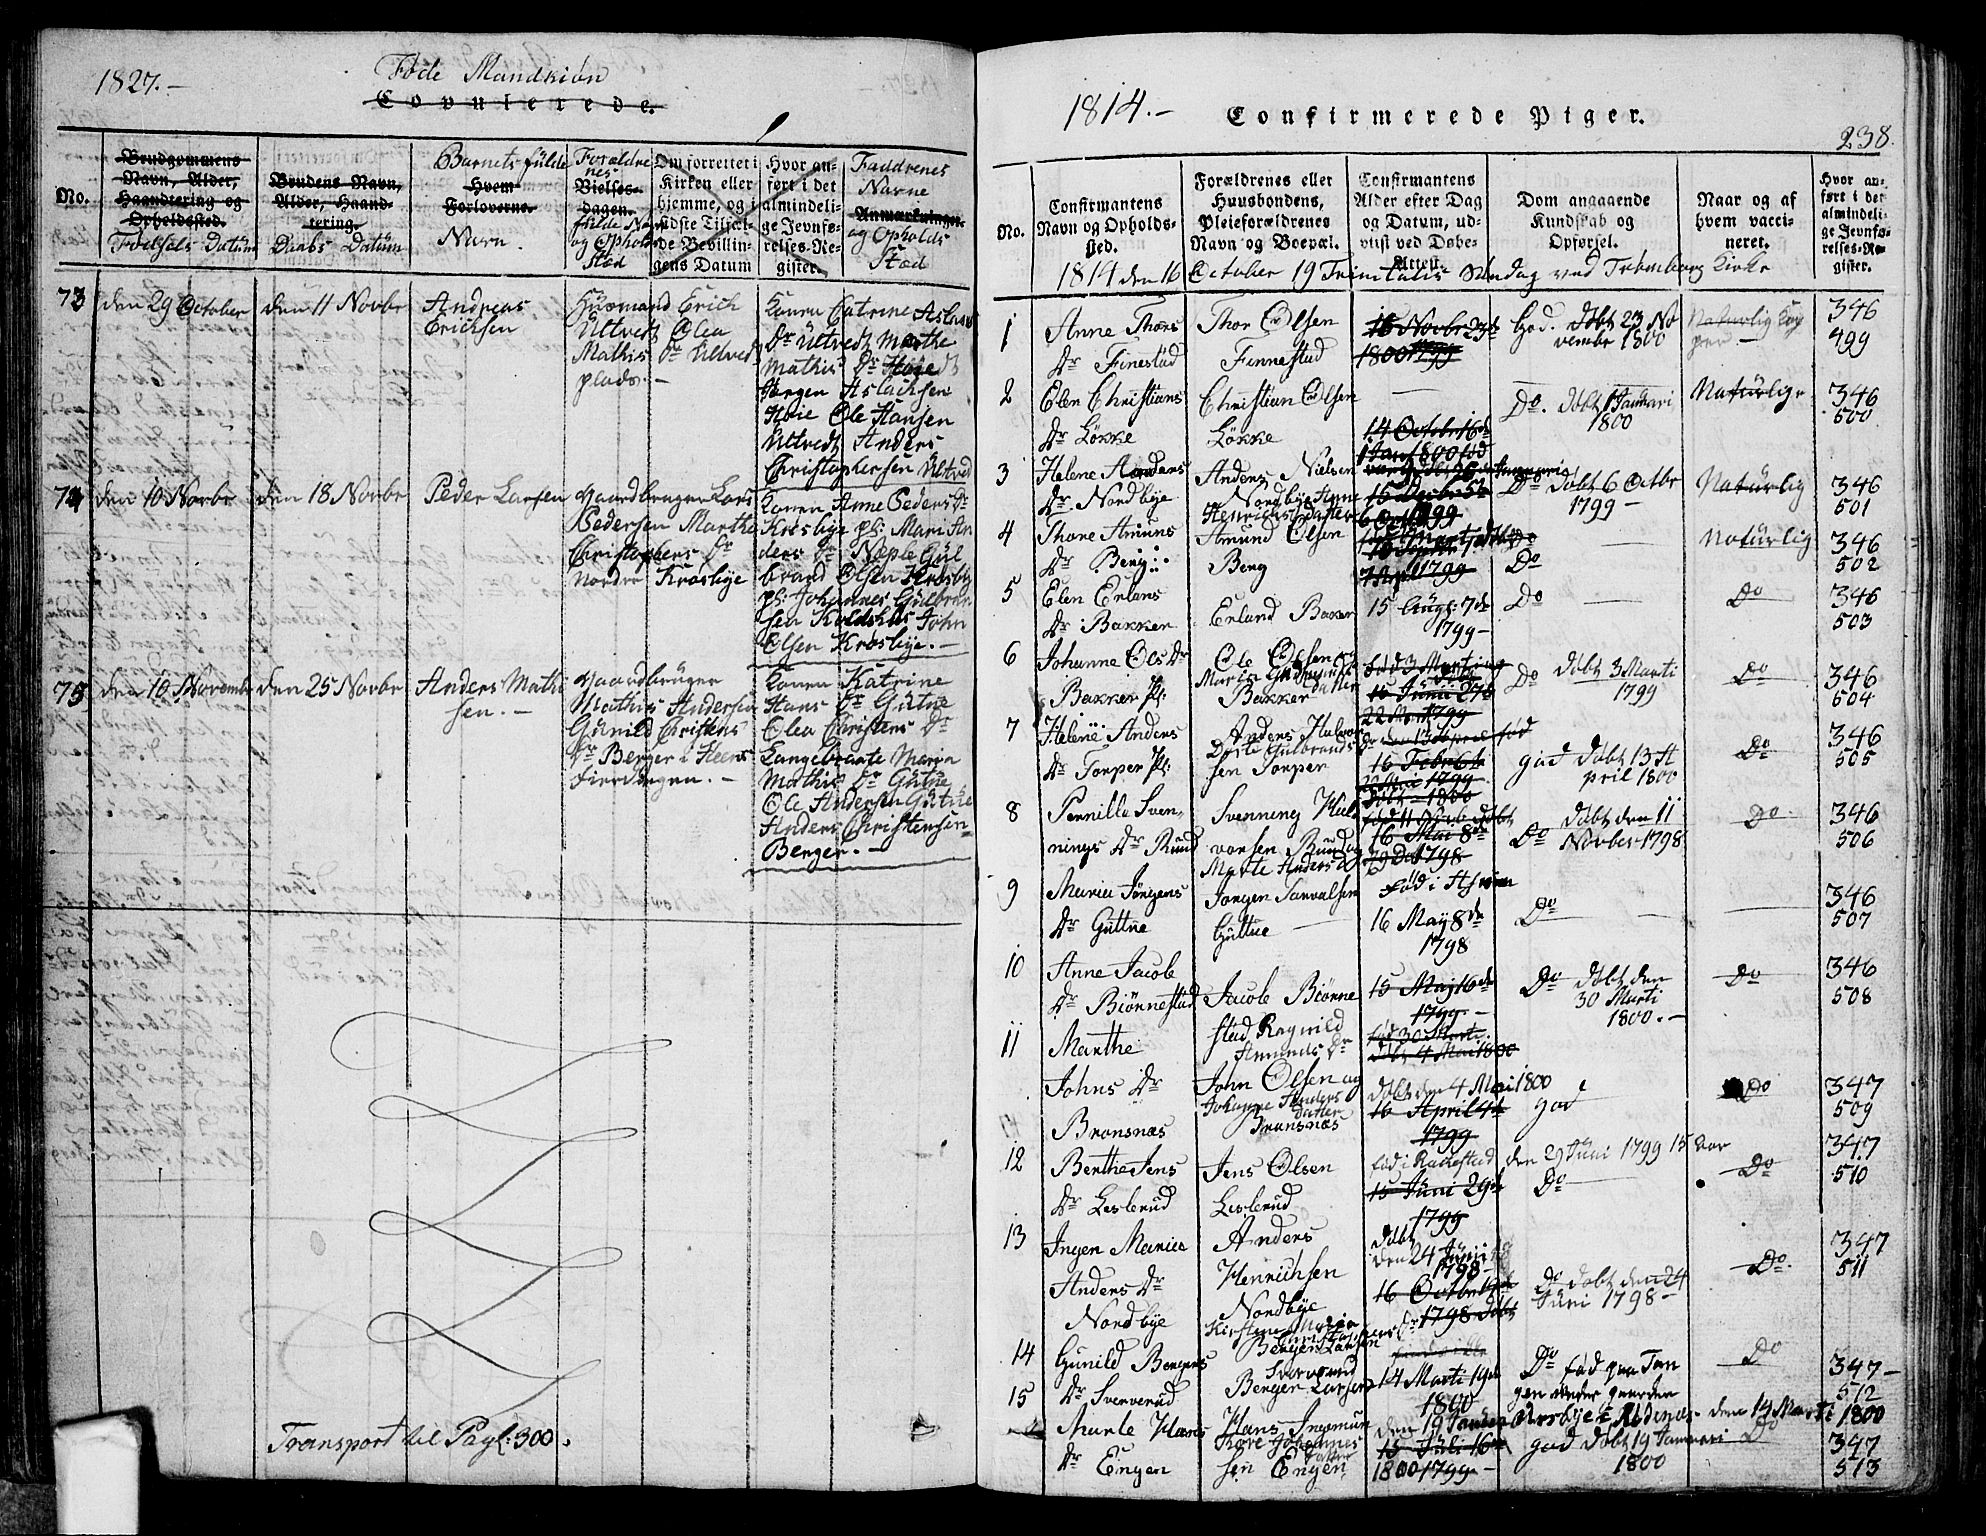 1827.-
Føde Mandkiøn
Copulerede.
No.
Brudgommens Navn, Alder, Haandtering og Opholdssted.
Fødsels Datum
Brudens Navn, Alder, Haandtering.
Daabs Datum
Barnets fulde
Hvem Forloverne.
Navn.
Forældrenes
Vielses-Dagen.
fulde Navn og Opholds Stæd
Om forrettet i Kirken eller hjemme, og i sidste Tilfælde Bevillingens Datum
Hvor anført i det almindelige Jevnførelses-Register.
Faddrenes Navne
Anmærkninger.
og Opholds Stæd
73
den 29 October
den 11 Novbr
Andreas
Erichsen
Huusmand Erich
Ultvedt Olea
Mathis Dr Ultvedt
plads.-
Konen Catrine Aslaks
Dr Ultvedt Marthe
Mathis Dr Høie
Jørgen Aslachsen
Høie Ole Hansen
Ultvedt Anders
Christophersen Ultved
74
den 10 Novbr
den 18 Novbr
Peder Larsen
Gaardbruger Lars
Pedersen Marthe
Christophers Dr
Nordre Krosbye
Konen Anne Peders Dr
Krosbye pl: Mari An
ders Dr Næple Gul
brand Olsen Krosby
pl: Johannes Gulbran
sen Koldshus John
Olsen Krosbye.-
75
den 10 November
den 25 Novbr
Anders Mathi
sen.-
Gaardbruger
Mathis Andersen
Gunild Christens
Dr Berger i Heers
Fierdingen.-
Konen Katrine
Hans Dr Gutue
Olea Christens Dr
Langebraate Maria
Mathis Dr Gutue
Ole Andersen Gutue
Anders Christensen
Berger.-
Transport til Pag: 300.
1814.-
Confirmerede Piger.
238.
No.
Confirmantens Navn og Opholdssted.
Forældrenes eller Huusbondens, Pleieforældrenes Navn og Boepæl.
Confirmantens Alder efter Dag og Datum, udviist ved Døbe-Attest.
Dom angaaende Kundskab og Opførsel.
Naar og af hvem vaccineret.
Hvor anført i det almindelige Jevnførelses-Register.
1814 den 16 October 19 Trinitatis Søndag ved Trømborg Kirke
1
Anne Thors
Dr Finestad
Thor Olsen
Finnestad
16 Novbr 23de
1800 1799
God. døbt 23 No
vember 1800
Naturlig Kop
per.-
346
499
2
Elen Christians
Dr Løkke
Christian Olsen
Løkke
14 Octobr 16de
Do. døbt 1 Januari
1800
Naturlige
346
500
3
Helene Anders
Dr Nordbye
Anders Nielsen
Nordbye Anne
Henrichsdatter
1799
Do døbt 6 Octbr
1799-
Naturlig
346
501
4
Thore Amuns
Dr Berg
Amund Olsen
Berg
1799
Do
Do
Naturlig
346
502
5
Elen Erlans
Dr Bakker
Erland Baker
15 Augs: 7de
1799-
Do
Do
346
503
6
Johanne Ols Dr
Bakker Pl:
Ole Olsen og
Bakker
15 Juni 27de
22 Marti 1799
Do døbt 3 Marti
1799
Do
346
504
7
Helene Anders
Dr Torper Pl:
Anders Halvor
Dorte Gulbrands Dr
sen Torper
16 Febr 6te
1799
døbt - 1800
god døbt 13 A
pril 1800
Do
346
505
8
Pernilla Sven
nings Dr Ruud
Svenning Hal
vorsen Ruud og
Marte Anders Dr
16 Mai 8de
1798
Do døbt den 11
Novber 1798
Do.
346
506
9
Maria Jørgens
Dr Guttue
Jørgen Tarvalsen
Guttue
Fød i
16 May 8de
1798
Do
346
507
10
Anne Jacob
Dr Biønnestad
Jacob Biønne
stad Ragnild
Amunds Dr
15 Maj 16de
1799-
fød 30 Marti.
døbt 4 Mai 1800
Do døbt den
30 Marti
1800.-
Do
346
508
11
Marthe
Johns Dr
Brønsnæs
John Olsen og
Johanne Anders
datter
Brønsnæs
døbt den 4 Mai 1800
16 April 4de
1799
god
Do
347
509
12
Berthe Jens
Dr Leslerud
Jens Olsen
Leslerud
fød i Rakestad den 29 Juni 1799 15 aar
15 Juni 29de
1799
Do
Do
347
510
13
Ingen Maria
Anders Dr
Nordbye
Anders
Henrichsen
Nordbye
døbt
den 24 Junii
1798-
16 Octbr
1798 døbt
Do døbt den 24
Juni 1798-
Do.
347
511
14
Gunild Bergers
Dr Sververud
Bergen Larsen
Sververud
Bergen Larsen
14 Marti 19de
1800
Do fød paa Tan
gen under gaarden
den 14 Marti 1800
Do
347-
512
15
Marte Hans
Dr Engen
Hans Ingemun
Kare Johannes
datter
sen Engen
den 19 Januar
15 Juli 16de
1800 1799-
god døbt 19 Januari
1800
Do
347
513